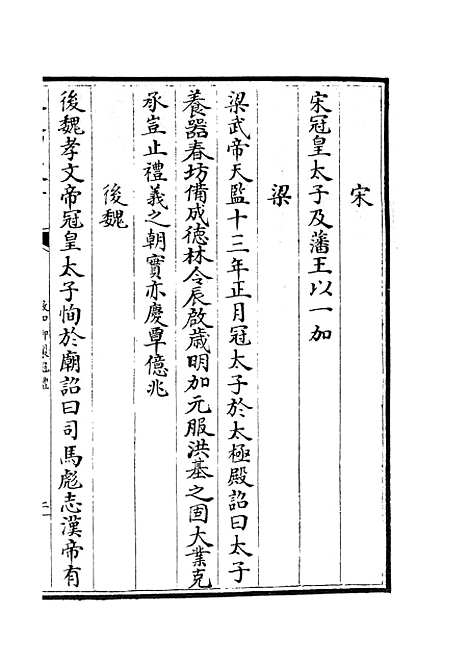 宋
宋冠皇太子及藩王以一加
梁
梁武帝天監十三年正月冠太子於太極殿詔曰太子
養器春坊備成德林令辰啟歳明加元服洪基之固大業克
承豈止禮義之朝實亦慶覃億兆
後魏
後魏孝文帝冠皇太子恂於廟詔曰司馬彪志漢帝有